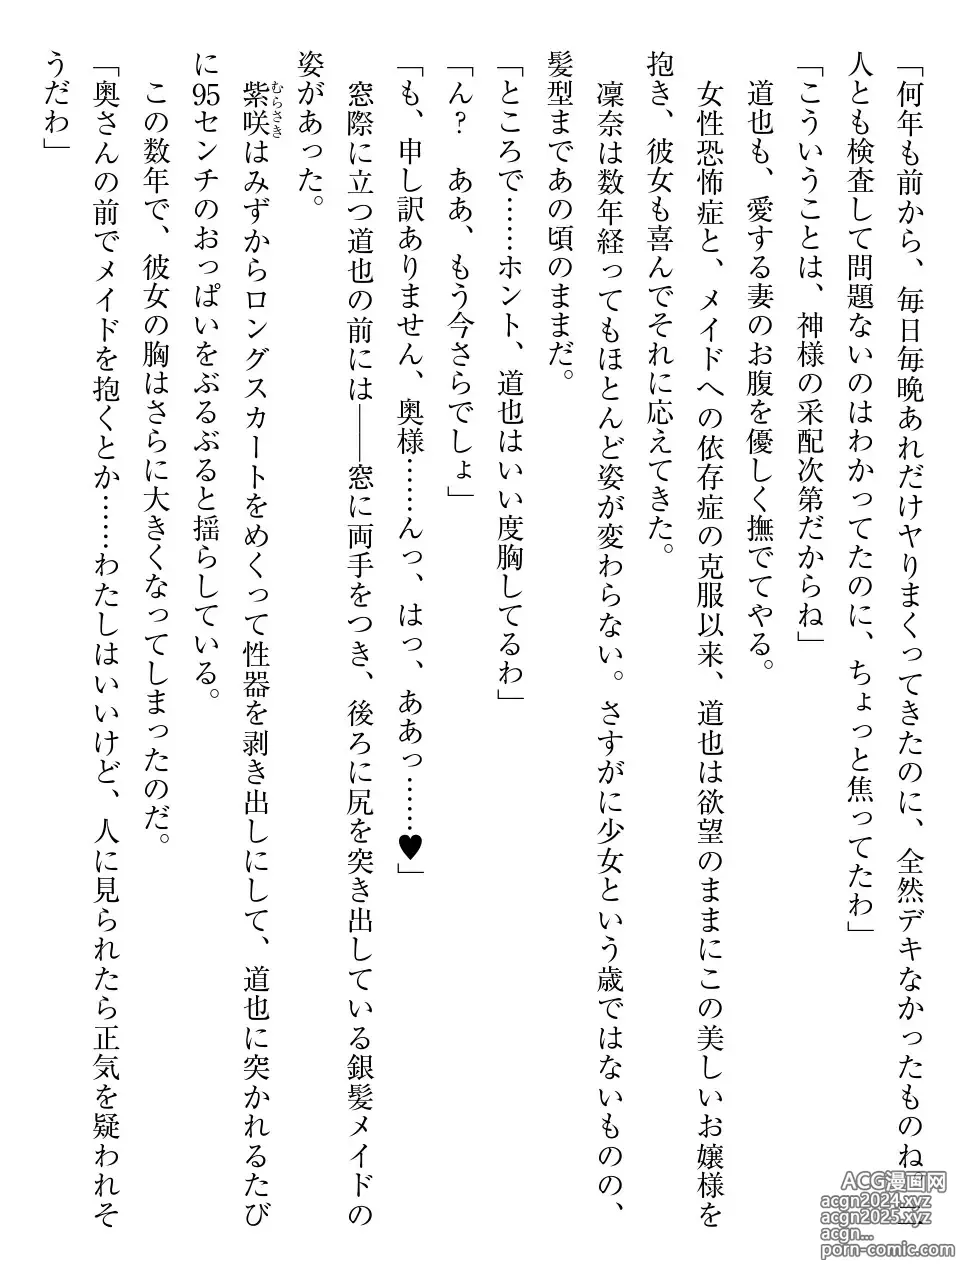 「何年も前から、毎日毎晩あれだけヤりまくってきたのに、全然デキなかったものね。
人とも検査して問題ないのはわかってたのに、ちょっと焦ってたわ」
「こういうことは、神様の采配次第だからね」
道也も、愛する妻のお腹を優しく撫でてやる。
女性恐怖症と、メイドへの依存症の克服以来、道也は欲望のままにこの美しいお嬢様を
抱き、彼女も喜んでそれに応えてきた。
凜奈は数年経ってもほとんど姿が変わらない。さすがに少女という歳ではないものの、
髪型まであの頃のままだ。
「ところで……ホント、道也はいい度胸してるわ」
「ん？　ああ、もう今さらでしょ」
「も、申し訳ありません、奥様……んっ、はっ、ああっ……♥」
窓際に立つ道也の前には――窓に両手をつき、後ろに尻を突き出している銀髪メイドの
姿があった。
紫咲むらさきはみずからロングスカートをめくって性器を剥き出しにして、道也に突かれるたび
に95センチのおっぱいをぶるぶると揺らしている。
この数年で、彼女の胸はさらに大きくなってしまったのだ。
「奥さんの前でメイドを抱くとか……わたしはいいけど、人に見られたら正気を疑われそ
うだわ」
ACG漫画网
acgn2024.xyz
acgn2025.xyz
acgn...
porn-comic.com